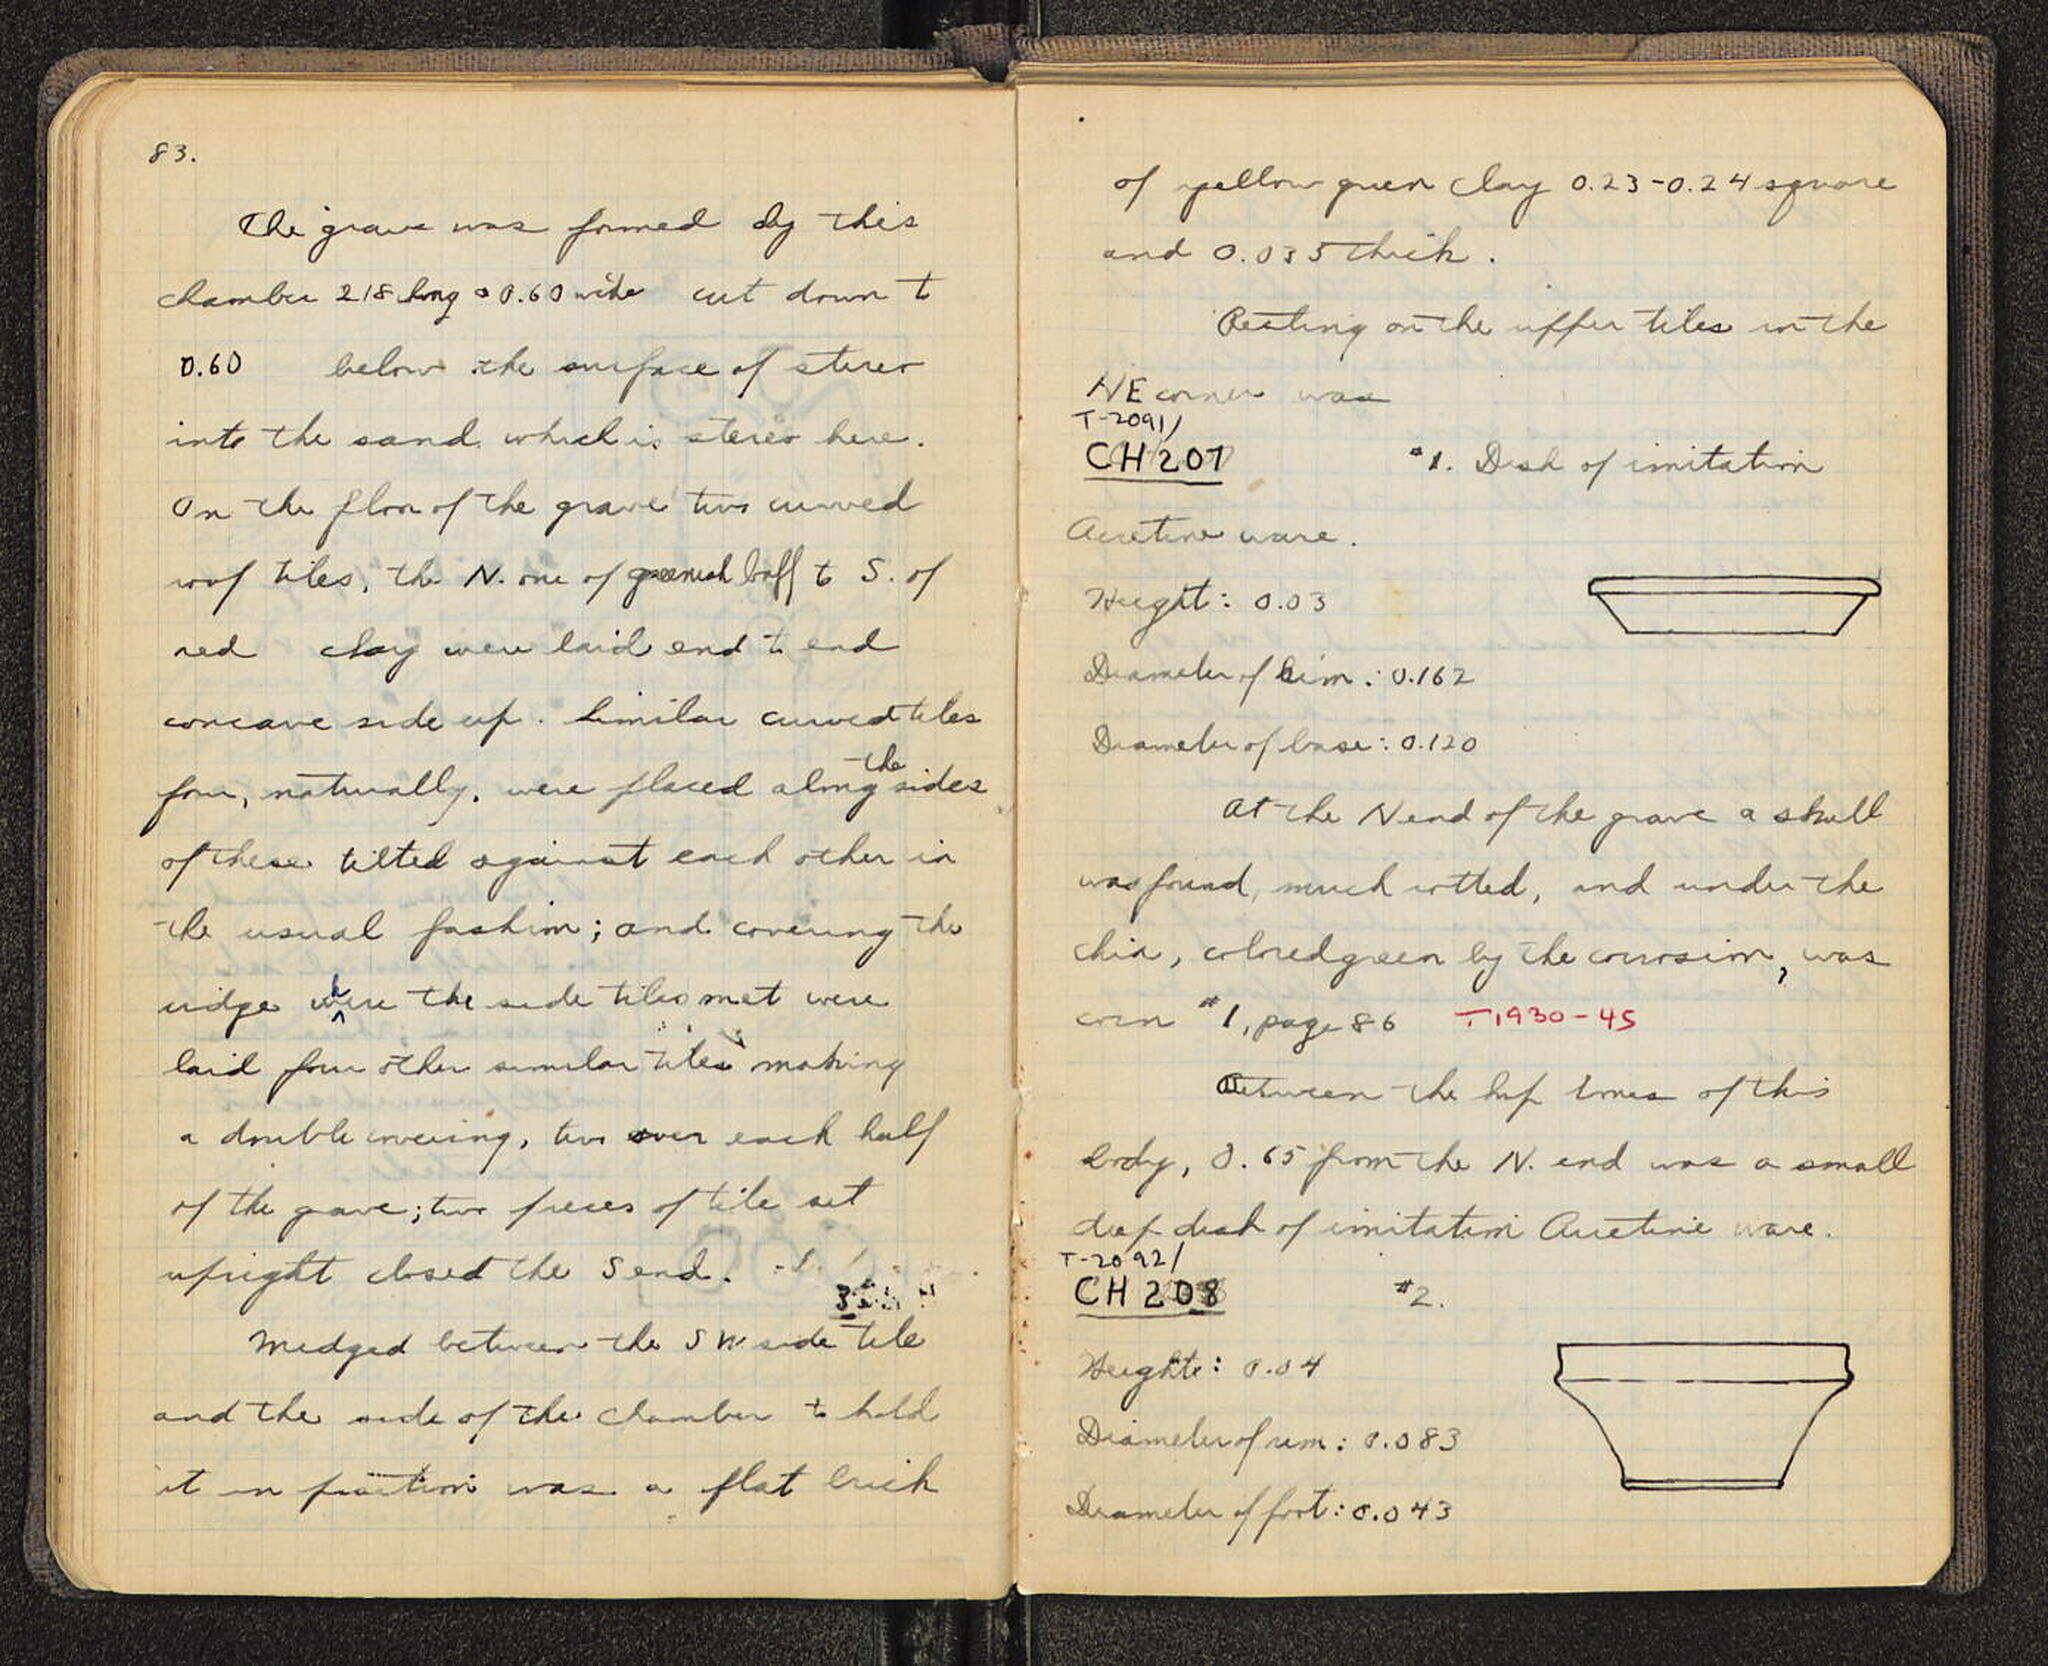 83.
The grave was formed by this
chamber 218 long o 0.60 wide cut down to
0.60 below the surface of stereo
into the sand which is stereo here.
On the floor of the grave two curved
roof tiles, the N. one of greenish buff to S. of
red clay were laid end to end
concave side up. Similar curved tiles
four, naturally, were placed along the sides
of these tilted against each other in
the usual fashion; and covering the
ridge where the side tiles met were
laid four other similar tiles making
a double covering, two over each half
of the grave; two pieces of tile set
upright closed the S end.
Wedged between the SW side tile
and the side of the chamber to hold
it in position was a flat brick
of yellow green clay 0.23-0.24 square
and 0.035 thick.
Resting on the upper tiles in the
NE corner was
T-2091/
CH 207 #1. Dish of imitation
Arretine ware.
Height: 0.03
Diameter of rim: 0.162
Diameter of base: 0.120
At the N end of the grave a skull
was found, much rotted, and under the
chin, colored green by the corrosion, was
coin #1, page 86 T1930-45
Between the hip bones of this
body, 0.65 from the N. end was a small
deep dish of imitation Arretine ware.
T-2092/
CH 208 #2.
Height: 0.04
Diameter of rim: 0.083
Diameter of foot: 0.043